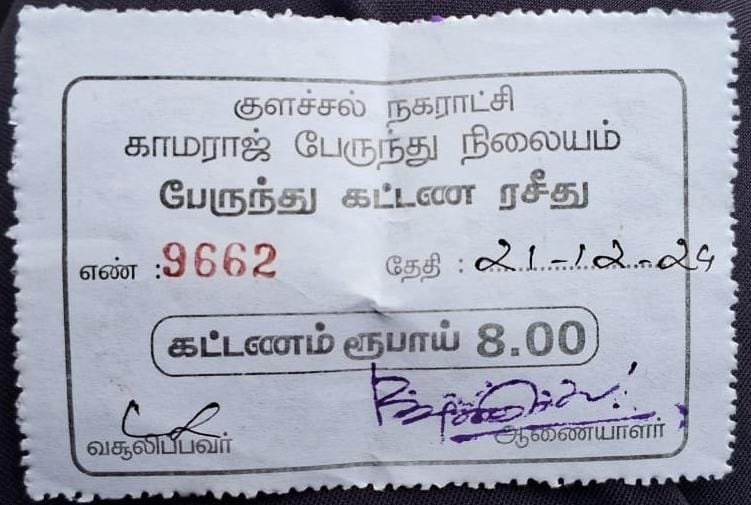 குளச்சல் நகராட்சி
காமராஜ் பேருந்து நிலையம்
பேருந்து கட்டண ரசீது
எண் :9662 தேதி : 21-12-24
கட்டணம் ரூபாய் 8.00
வசூலிப்பவர் ஆணையாளர்